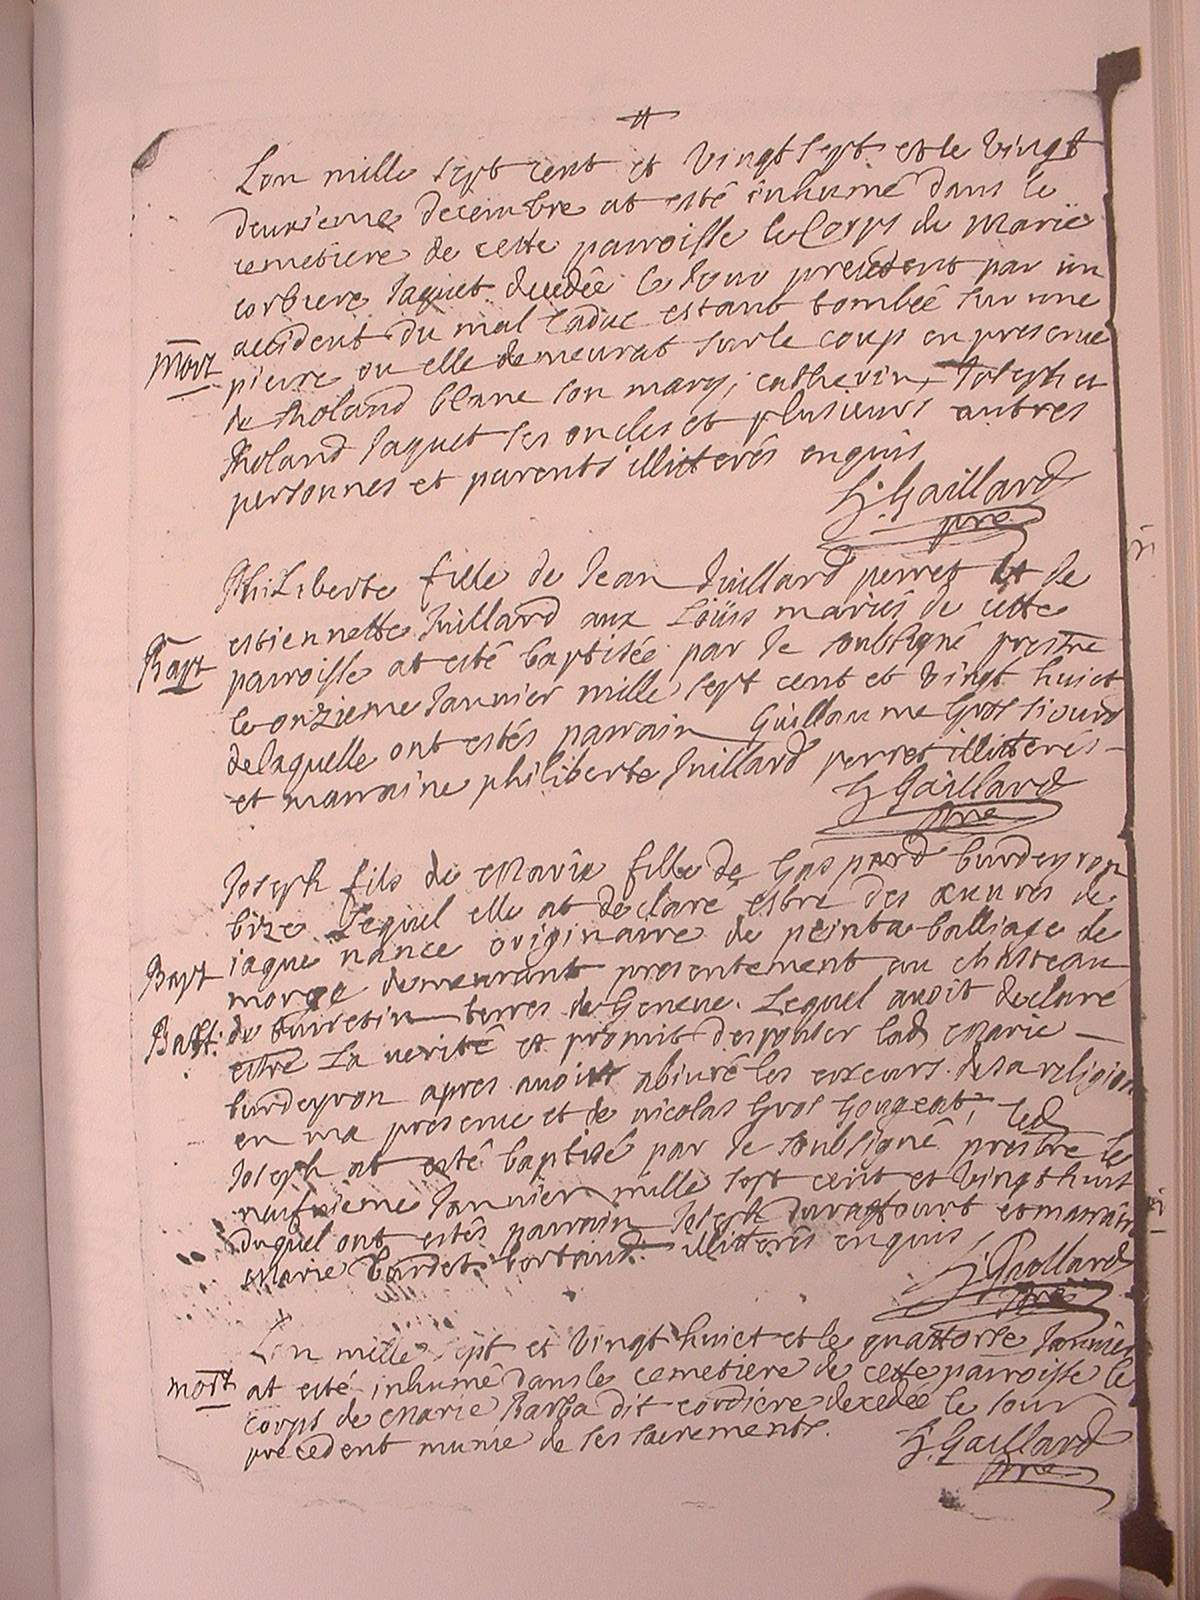 Lan mille sept cent et vingt sept et le vingt
deuxieme decembre at esté inhumé dans le
cemetiere de cette parroisse le Corps de Marie
corbiere Jaquet decedée le Jour precedent par un
accident du mal caduc estant tombée sur une
Mort
pierre ou elle demeurat sur le coup en presence
de Roland blanc son mary, catherin, Joseph et
Roland Jaquet ses oncles et plusieurs autres
personnes et parents illitterés enquis
Gaillard
pre
Philiberte fille de Jean Juillard perret et de
estiennette Juillard aux mariés de cette
Bapt
parroisse at esté baptisée par le soubsigné prestre
le onzieme Janvier mille sept cent et vingt huict
de laquelle ont estés parrain Guillaume Gros
et marraine philiberte Juillard perret illitterés
Gaillard
pre
Joseph fils de Marie fille de Gaspard burdeyron
bize lequel elle at declare estre des œuvres de
Bapt
iaque nance originaire de peinta balliage de
morge demeurant presentement au chasteau
Bast:
de turretin terres de Geneve. Lequel avoit declaré
estre La verité et promit despouser lad Marie
burdeyron apres avoir abiuré les erreurs de sa religion
en ma presence et de nicolas Gros Gougeat, led
Joseph at esté baptisé par le soubsigné prestre le
neufvieme Janvier mille sept cent et vingt huit
duquel ont estés parrain Joseph durafourt et marraine
Marie illitterés enquis
Gaillard
pre
Lan mille sept et vingt huict et le quattorse Janvier
mort
at esté inhumé dans le cemetiere de cette parroisse le
corps de Marie Barba dit cordiere decedée le Jour
precedent munie de ses sacrements.
Gaillard
pre